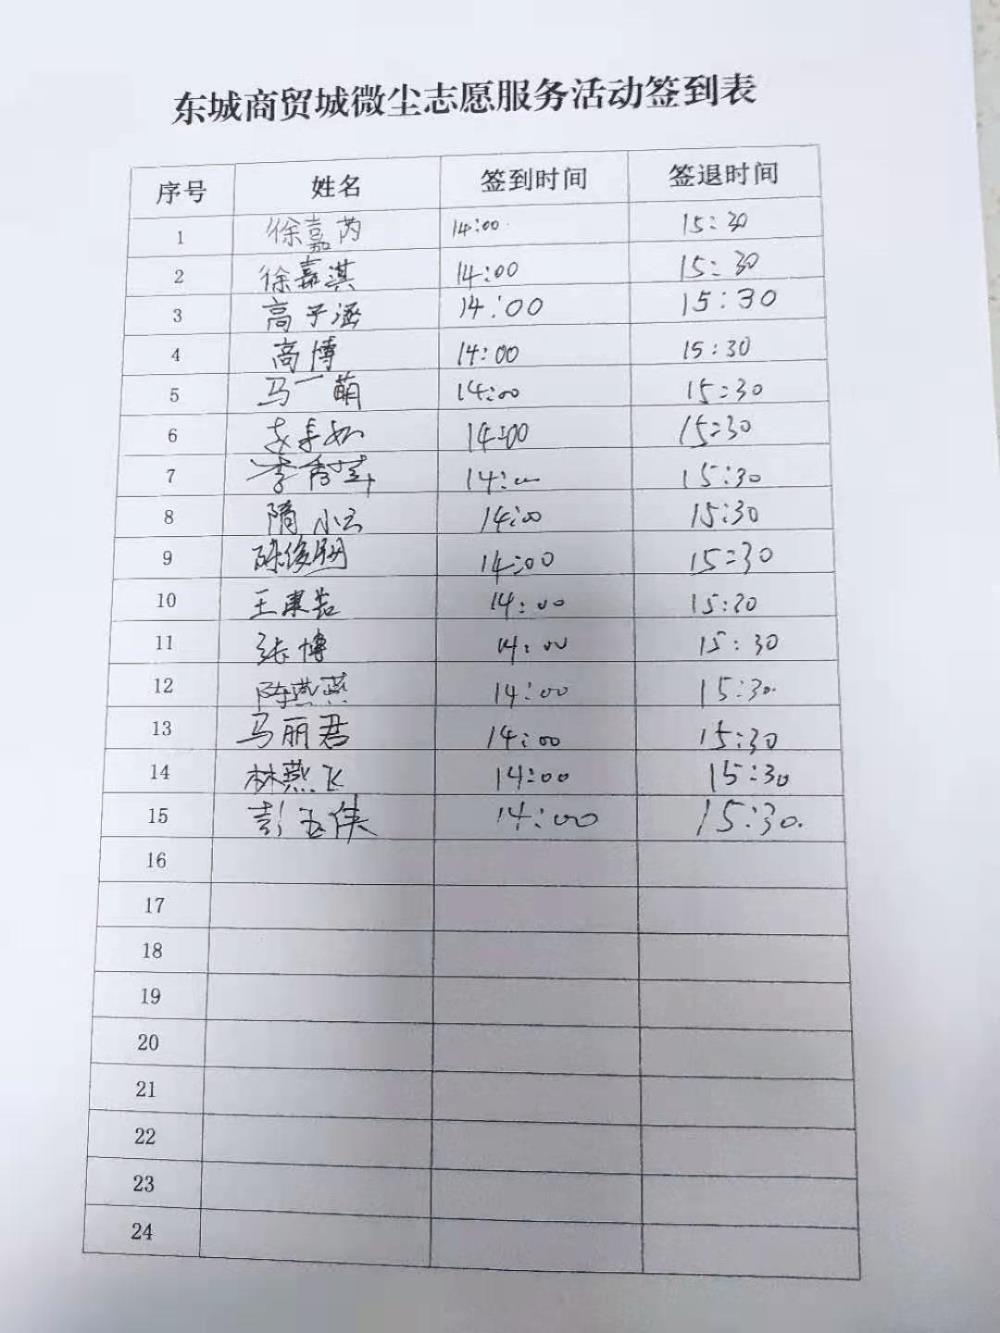 东城商贸城微尘志愿服务活动签到表
序号 姓名 签到时间 签退时间
1 徐嘉芮 14:00 15:30
2 徐嘉淇 14:00 15:30
3 高子涵 14:00 15:30
4 高博 14:00 15:30
5 马一萌 14:00 15:30
6 14:00 15:30
7 李秀 14:00 15:30
8 隋小云 14:00 15:30
9 陈俊 14:00 15:30
10 王 14:00 15:30
11 张博 14:00 15:30
12 陈燕燕 14:00 15:30
13 马丽君 14:00 15:30
14 林燕飞 14:00 15:30
15 彭玉侠 14:00 15:30
16
17
18
19
20
21
22
23
24